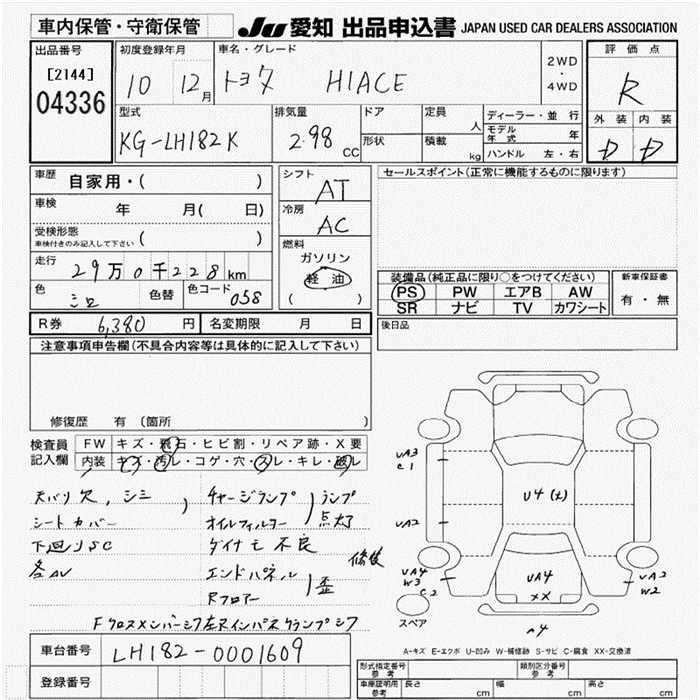 車内保管・守衛保管 JU 愛知 出品申込書 JAPAN USED CAR DEALERS ASSOCIATION
出品番号 初度登録年月 車名・グレード 2WD ・ 4WD 評価点
[2144] 10 12月 トヨタ HIACE R
04336 型式 排気量 ドア 定員 人 ディーラー・並行 外装 内装
KG-LH182K 2.98 CC 形状 積載 kg モデル年式 年 D D
ハンドル 左・右
車歴 自家用・( ) シフト AT セールスポイント(正常に機能するものに限ります)
車検 年 月( 日) 冷房 AC
受検形態 車検付きのみ記入して下さい ( ) 燃料
走行 29万0千228km ガソリン 装備品(純正品に限り○をつけてください) 新車保証書
色 シロ 色替 色コード 058 軽油 ( ) PS PW エアB AW 有・無
SR ナビ TV カワシート
R券 6,380円 名変期限 月 日 後日品
注意事項申告欄(不具合内容等は具体的に記入して下さい)
修復歴 有 (箇所 )
検査員記入欄 FW キズ・飛石・ヒビ割・リペア跡・X要
内装 キズ・汚レ・コゲ・穴・スレ・キレ・破レ
天バリ欠,シミ チャージランプ ランプ
シートカバー オイルフィルター 点灯
下廻りSC ダイナモ不良
各AU エンドパネル 歪 修後
Rフロアー
Fクロスメンバーシフ左右インパネクランプシフ
UA3
C1
UA2
UA4
W3
C2
U4(t)
UA4
XX
UA3
W2
A4
スペア
A-キズ E-エクボ U-凹み W-補修跡 S-サビ C-腐食 XX-交換済
車台番号 LH182-0001609
登録番号
形式指定番号 参考 類別区分番号 参考
車庫証明用 参考 長さ cm 幅 cm 高さ cm